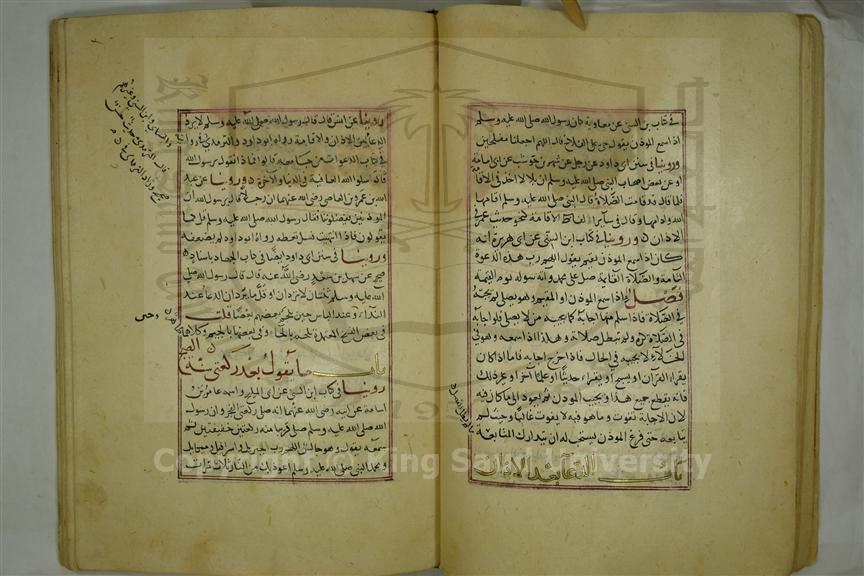 في كتاب بن السني عن معاوية كان رسول الله صلى الله عليه وسلم
اذا سمع الموذن يقول حي على الفلاح قال اللهم اجعلنا مفلحين
وروينا في سنن ابي داود عن رجل عن شهر بن حوشب عن ابي امامة
او عن بعض اصحاب النبي صلى الله عليه وسلم ان بلالا اخذ في الاقامة
فلما قال قد قامت الصلاة قال النبي صلى الله عليه وسلم اقامها
الله وادامها وقال في ساير الفاظ الاقامة كنحو حديث عمر في
الاذان وروينا في كتاب ابن السني عن ابي هريرة انه
كان اذا سمع الموذن يقيم يقول اللهم رب هذه الدعوة
التامة والصلاة القايمة صل على محمد واته سوله يوم القيمة
فصل اذا سمع الموذن او المقيم وهو يصلي لم يجبه
في الصلاة فاذا سلم منها اجابه كما يجيبه من لا يصلي فلو اجابه
في الصلاة كره ولم تبطل صلاته وهكذا اذا سمعه وهو في
الخلاء لا يجيبه في الحال فاذا خرج اجابه فاما اذا كان
يقراء القران او يسبح او يقراء حديثا او علما آخر او غير ذلك
فانه يقطع جميع هذا ويجيب الموذن ثم يعود الى ما كان فيه
لان الاجابة تفوت وما هو فيه لا يفوت غالبا وحيث لم
يتابعه حتى فرغ الموذن يستحب له ان يتدارك المتابعة
باب الدعا بعد الاذان
روينا عن انس قال قال رسول الله صلى الله عليه وسلم لا يرد
الدعا بين الاذان والاقامة رواه ابو داود والترمذي
في كتاب الدعوات من جامعه قالوا فماذا نقول يرسول الله
قال سلوا الله العافية في الدنيا والاخرة وروينا عن عبد
الله بن عمرو بن العاصي رضي الله عنهما ان رجلا قال يرسول الله ان
الموذنين يفضلوننا فقال رسول الله صلى الله عليه وسلم قل كما
يقولون فاذا انتهيت فسل تعطه رواه ابو داود لم يضعفه
وروينا في سنن ابي داود ايضا في كتاب الجهاد باسناد
صحيح عن سهل بن سعد رضي الله عنه قال قال رسول الله صلى
الله عليه وسلم ثنتان لا تردان او قلما تردان الدعا عند
النداء وعند الباس حين يلحم بعضهم بعضا قلت
في بعض النسخ المعتمدة يلحم بالحاء وفي بعضها بالجيم وكلاهما
باب ما يقول بعد ركعتي سنة الصبح
روينا في كتاب ابن السني عن ابي المليح واسمه عامر بن
اسامة عن ابيه رضي الله عنهما انه صلى ركعتي الفجر وان رسول
الله صلى الله عليه وسلم صلى قريبا منه ركعتين خفيفتين ثم
سمعه يقول وهو جالس اللهم رب جبريل واسرافيل وميكايل
ومحمد النبي صلى الله عليه وسلم اعوذ بك من النار ثلاث مرات
Copyright © King Saud University